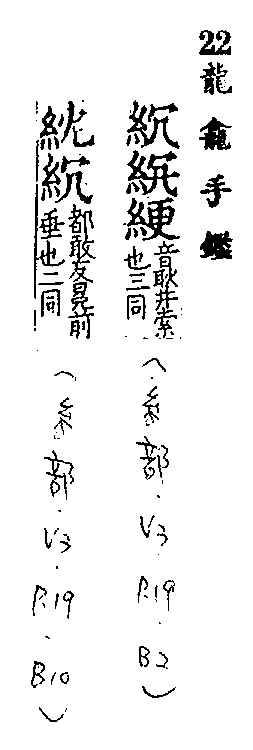 22龍龕手鑑
䋁𥿮綆音耿井索也三同
(糸部.V3.P.19.B2)
紞䋎都敢反冕前垂也二同
(糸部.V3.P.19.B10)